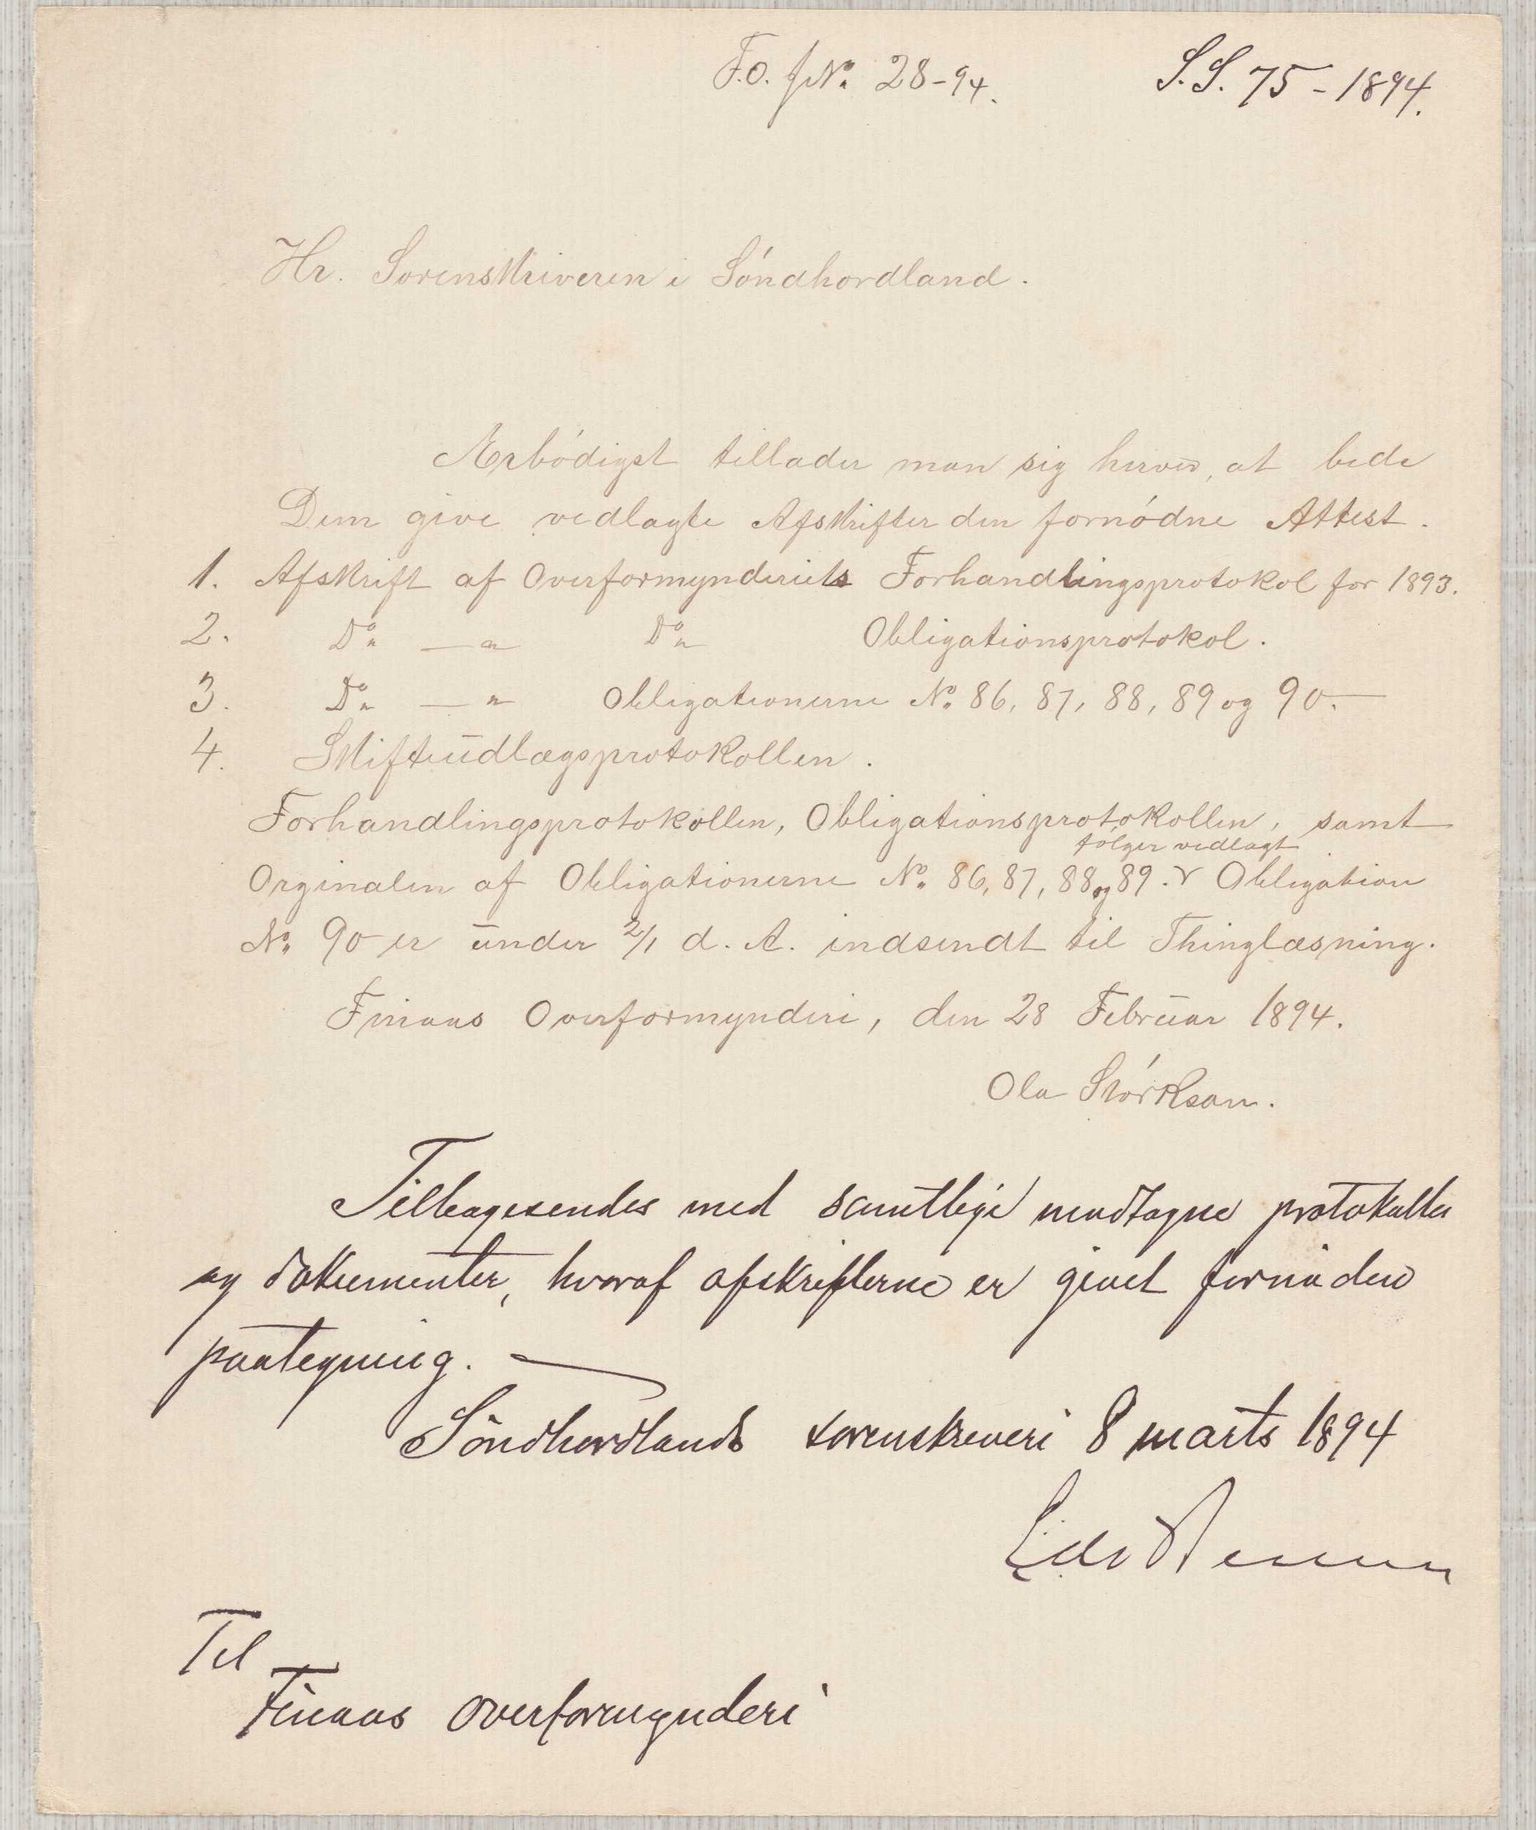 F.O. J.No. 28-94. S.S. 75-1894.
Hr. Sorenskriveren i Söndhordland.
Ærbódigst tillader man sig herved, at bede
Dem give vedlagte Afskrifter den fornódne Attest.
1. Afskrift af Overformynderiets Forhandlingsprotokol for 1893.
2. Do — " Do Obligationsprotokol.
3. Do — " Obligationerne No. 86, 87, 88, 89 og 90.—
4. Skifteudlægsprotokollen.
Forhandlingsprotokollen, Obligationsprotokollen, samt
fólger vedlagt
Orginalen af Obligationerne No. 86, 87, 88 og 89. Obligation
No. 90 er under 2/1 d. A. indsendt til Thinglæsning.
Finaas Overformynderi, den 28 Februar 1894.
Ola
Tilbagesendes med samtlige modtagne protokoller
og dokumenter, hvoraf afskrifterne er givet fornöden
paategning. —
Söndhordlands sorenskriveri 8 marts 1894
Til
Finaas overformynderi